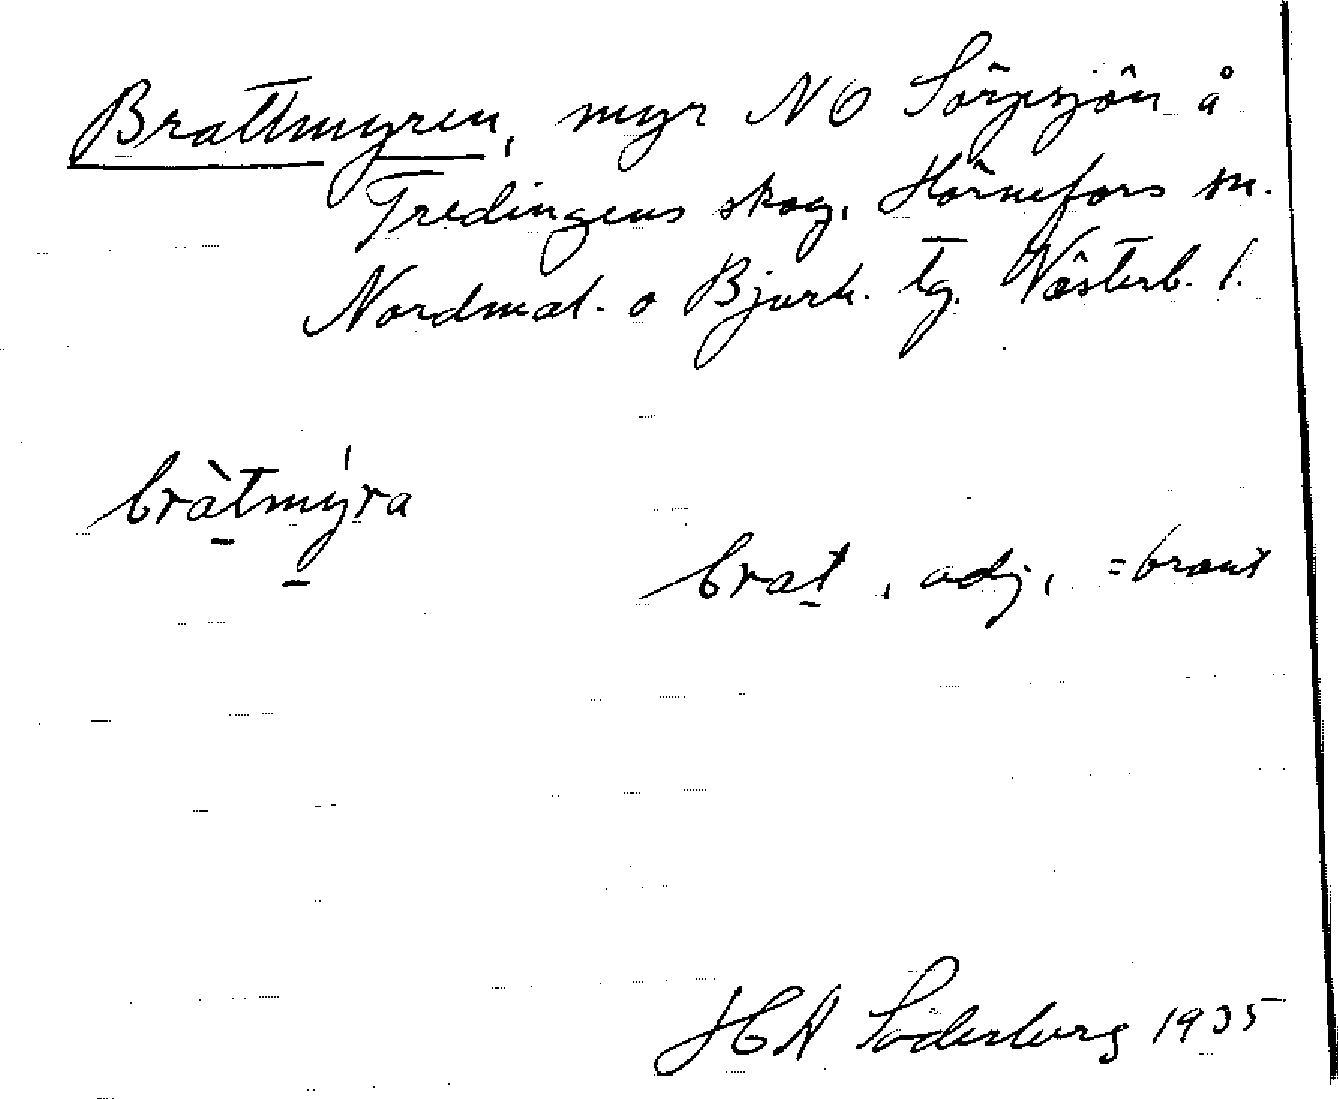 Brattmyren, myr NO Sörpsjön å
Tredingens skog, Hörnefors sn.
Nordmal. o Bjurh. tg. Västerb. l.
bràtmýra
brat, adj, = brant
HA Söderberg 1935